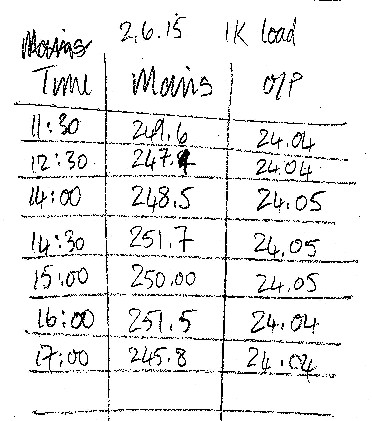 2.6.15 1K load
Mains
Time Mains O/P
11:30 249.6 24.04
12:30 247. 24.04
14:00 248.5 24.05
14:30 251.7 24.05
15:00 250.00 24.05
16:00 251.5 24.04
17:00 245.8 24.04